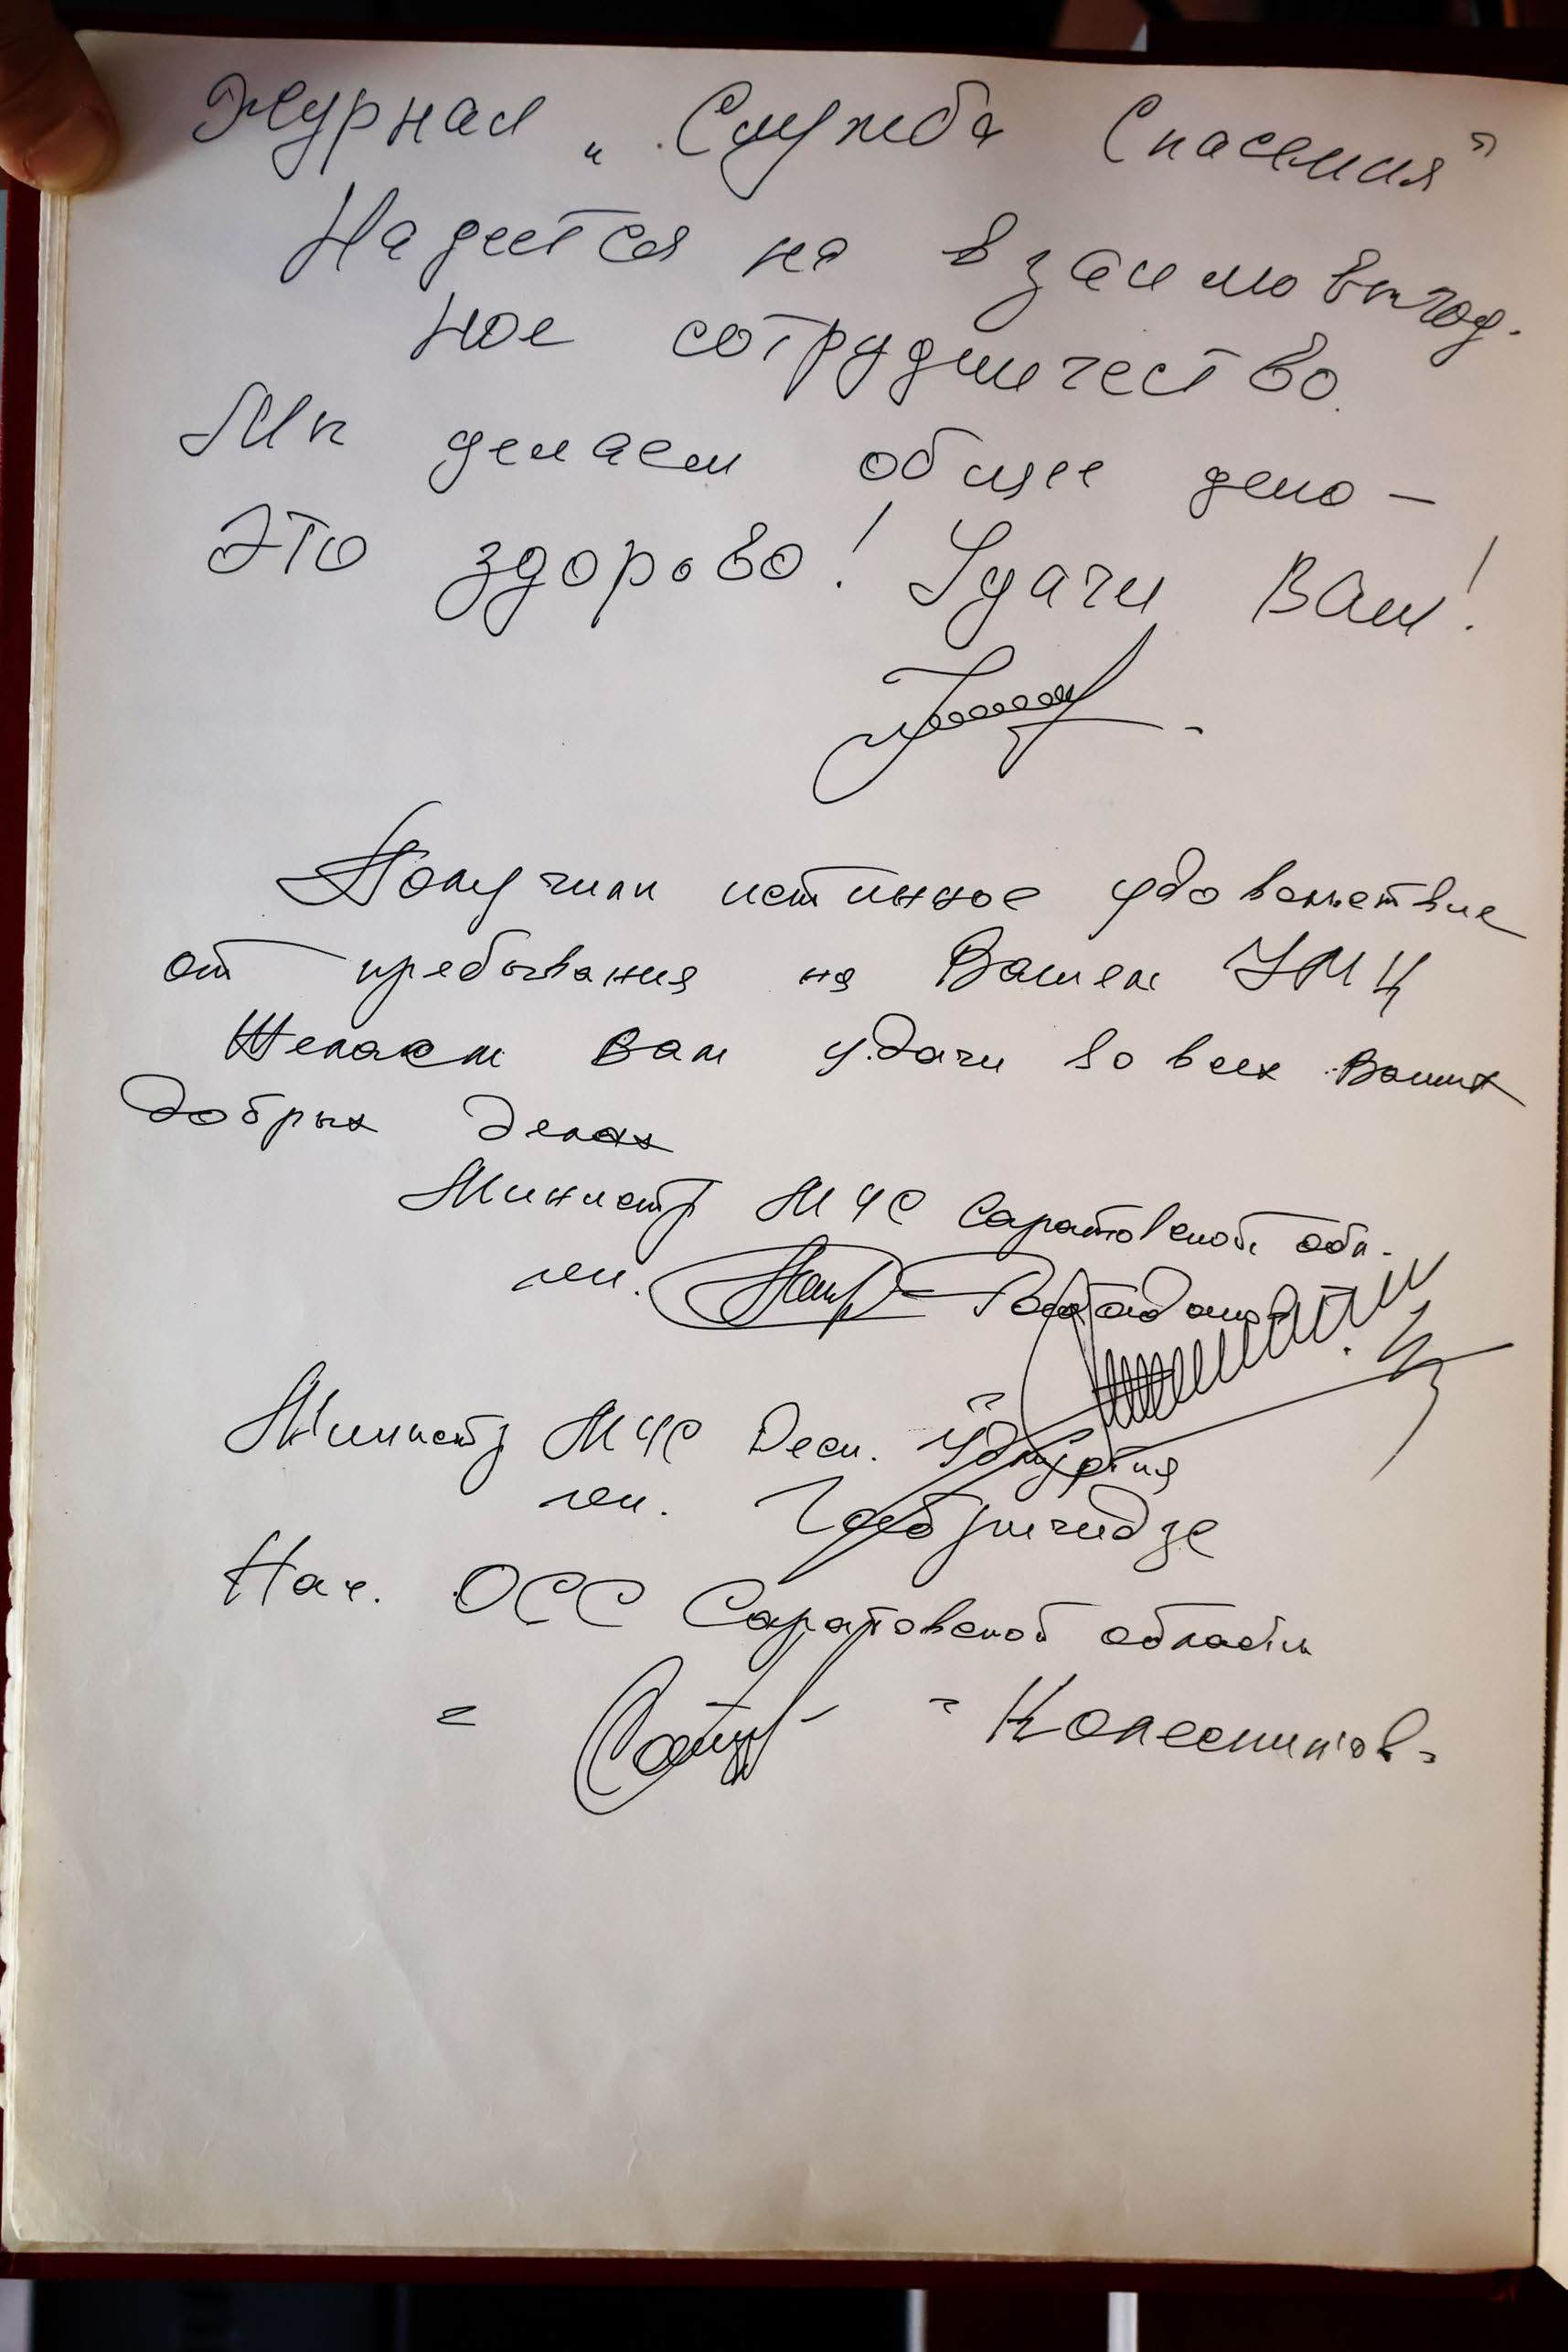 Журнал „Служба Спасения"
Надеется на взаимовыгод-
ное сотрудничество.
Мы делаем общее дело —
Это здорово! Удачи Вам!
Получили истинное удовольствие
от пребывания на Вашем УМЦ
Желаем Вам удачи во всех Ваших
добрых делах
Министр МЧС Саратовской обл.
ген.
Министр МЧС Респ. "Удмуртия
ген. Габричидзе
Нач. ОСС Саратовской области
= - Колесников-